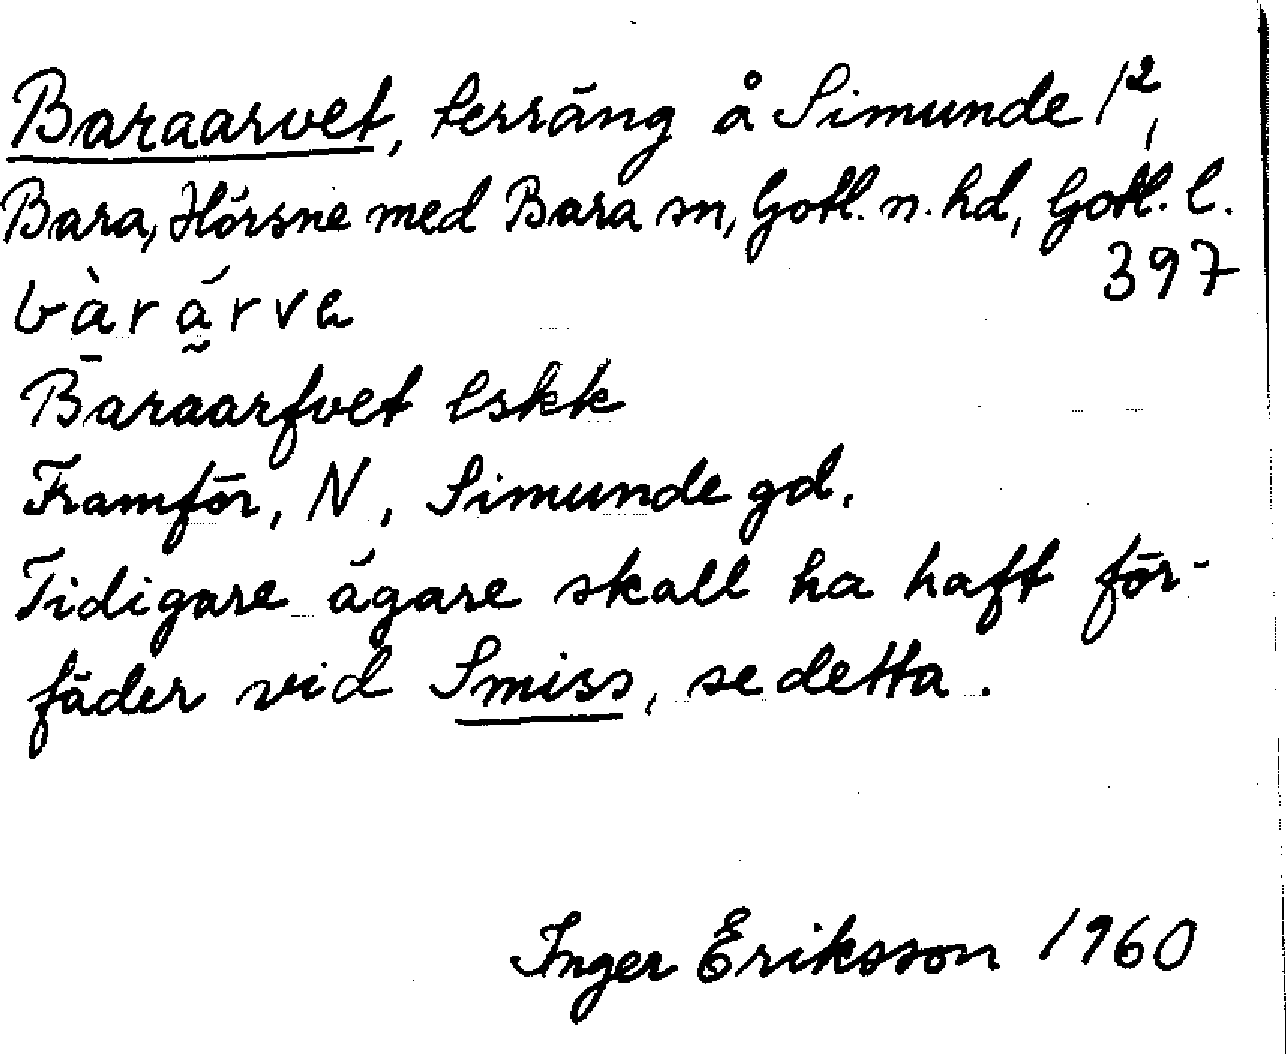 Baraarvet, terräng å Simunde 1²,
Bara, Hörsne med Bara sn, Gotl. n. hd, Gotl. l.
397
bàr á̰rva
Baraarfvet lskk
Framför, N, Simunde gd.
Tidigare ägare skall ha haft för-
fäder vid Smiss, se detta.
Inger Eriksson 1960